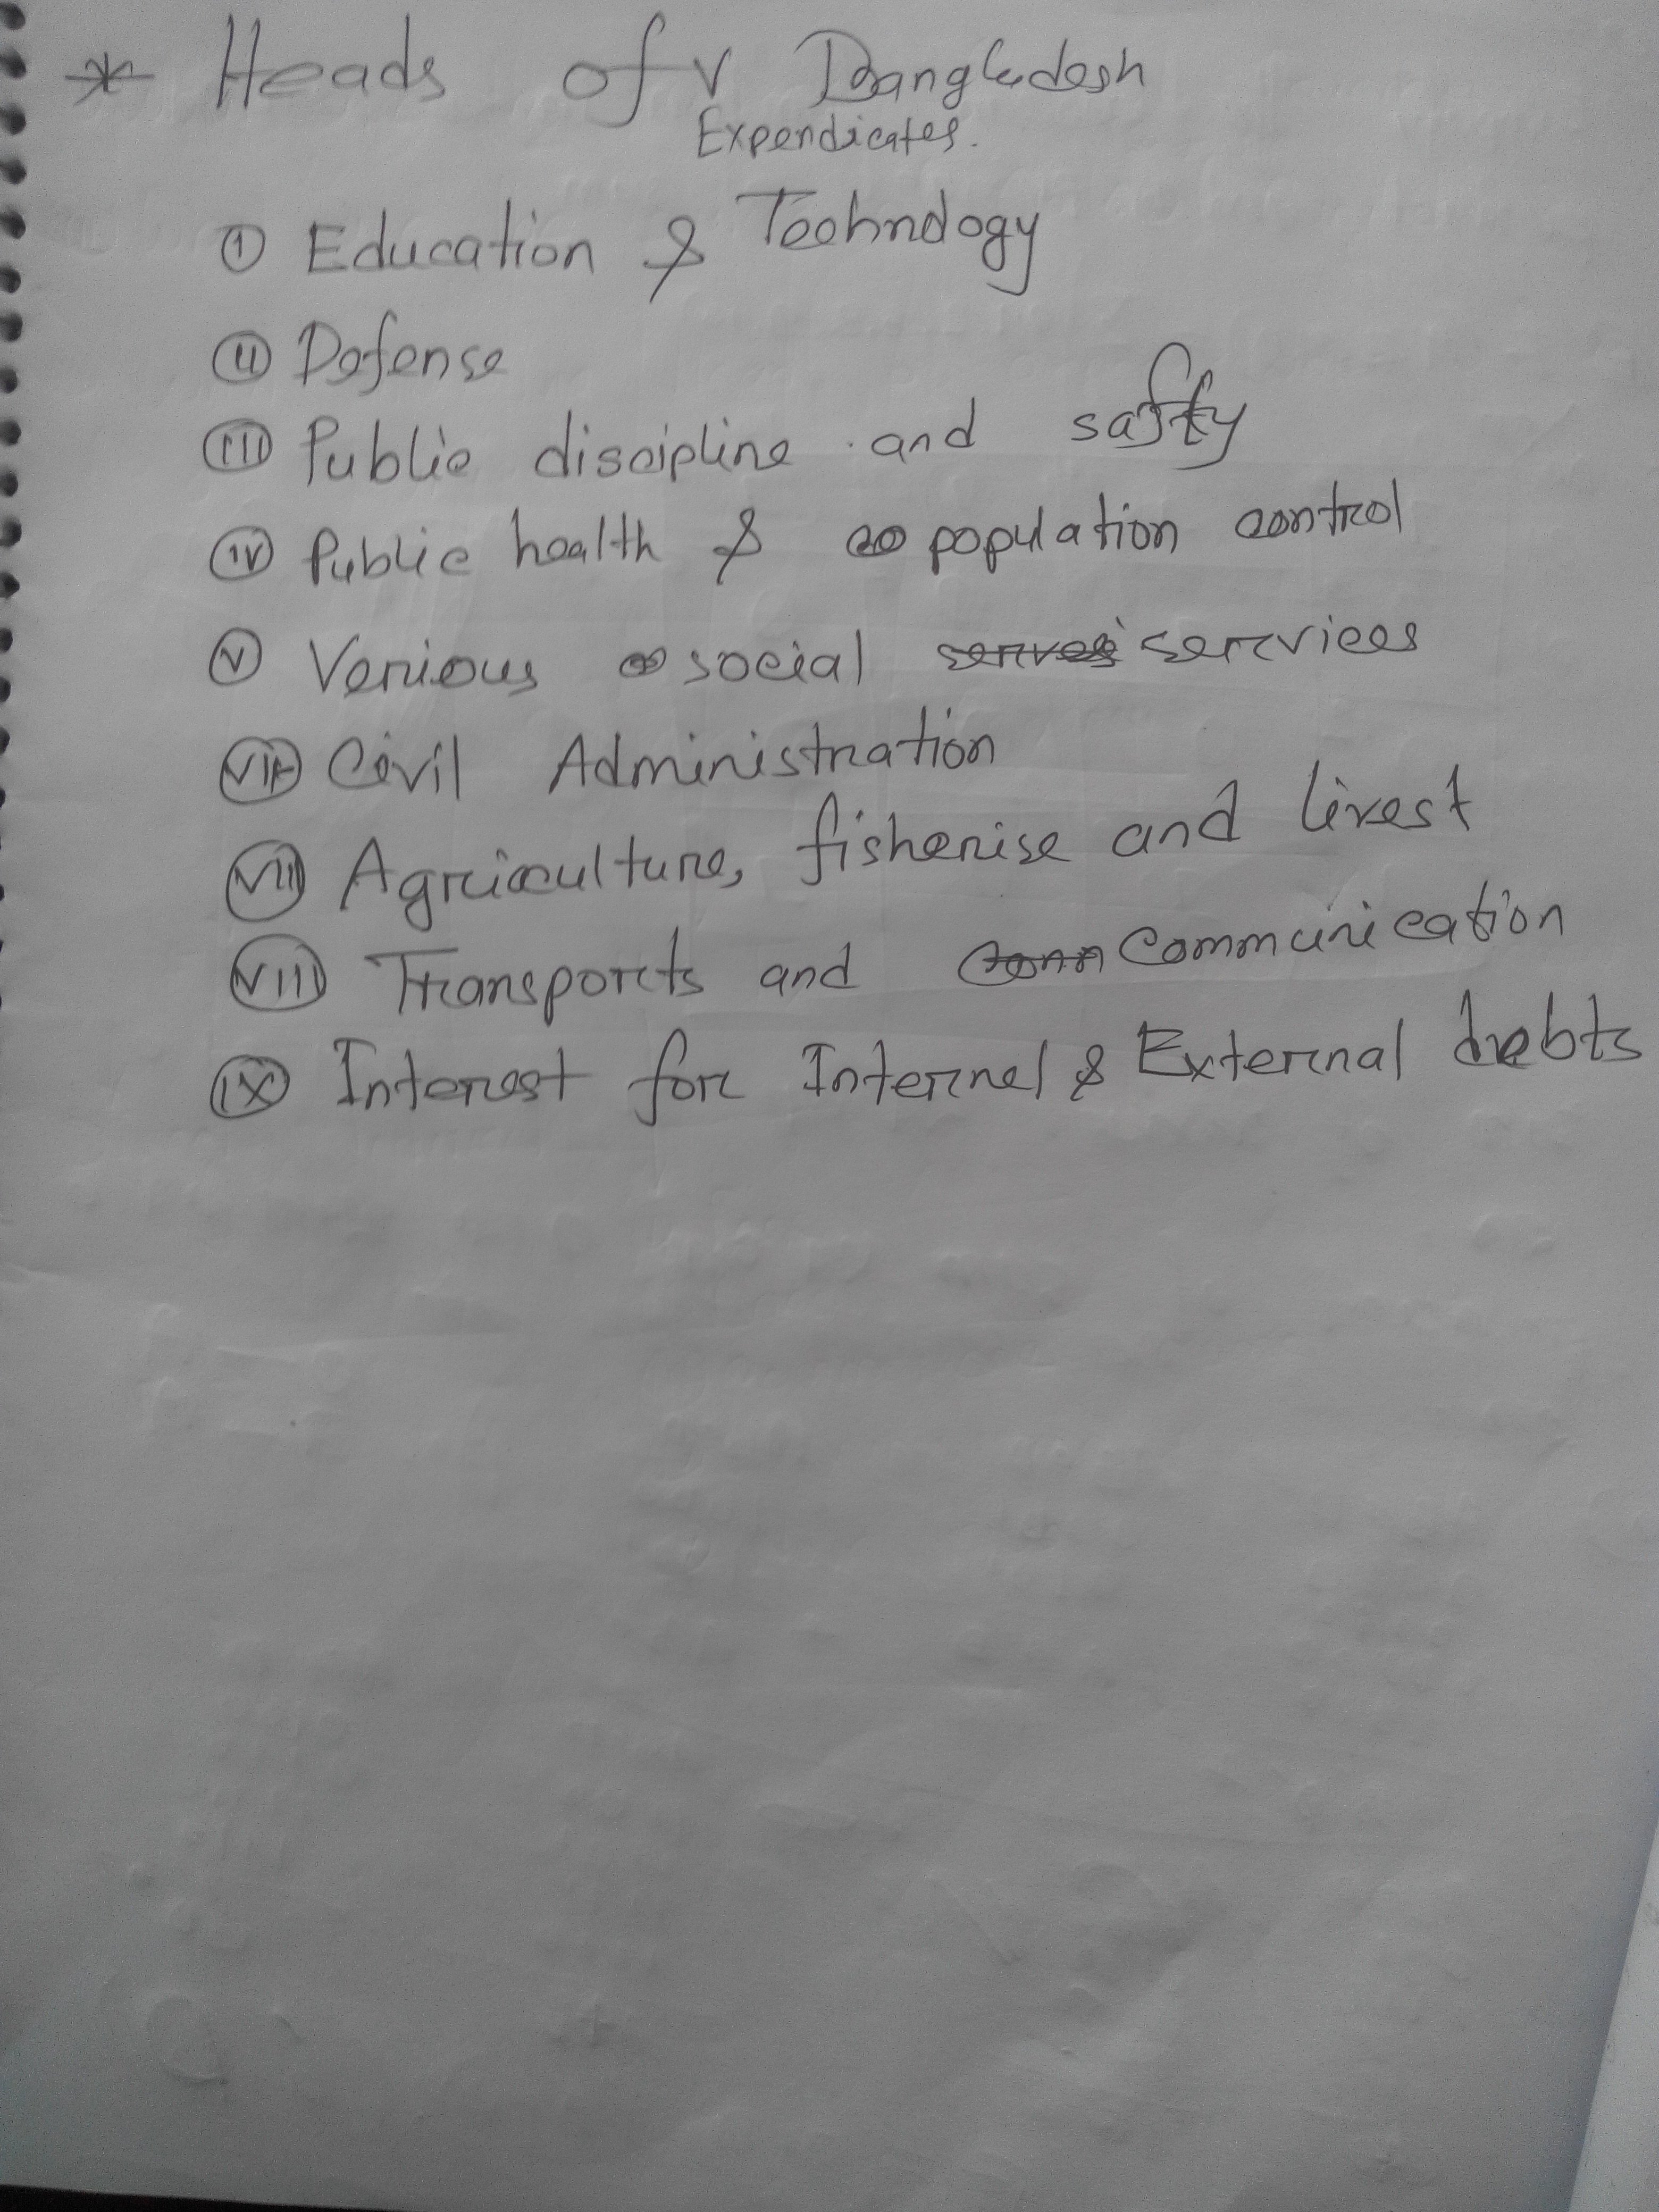 * Heads of Bangladesh
Expendicates.
(I) Education & Technology
(II) Defense
(III) Public discipline and safty
(IV) Public health & population control
(V) Verious social services
(VI) Civil Administration
(VII) Agriculture, fisherise and livest
(VIII) Transports and Communication
(IX) Interest for Internel & External debts